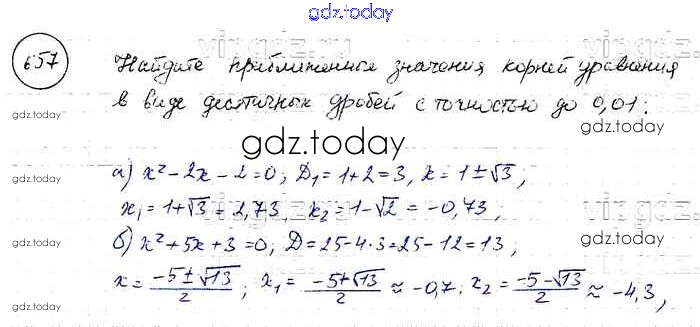 gdz.today
657
Найдите приближенные значения корней уравнения
в виде десятичных дробей с точностью до 0,01:
gdz.today
gdz.today
gdz.today
а) x² - 2x - 2 = 0; D₁ = 1 + 2 = 3, x = 1 ± √3,
x₁ = 1 + √3 = 2,73, x₂ = 1 - √2 = -0,73,
gdz.today
б) x² + 5x + 3 = 0, D = 25 - 4·3 = 25 - 12 = 13,
x = (-5 ± √13)/2; x₁ = (-5 + √13)/2 ≈ -0,7. x₂ = (-5 - √13)/2 ≈ -4,3,
gdz.today
gdz.today